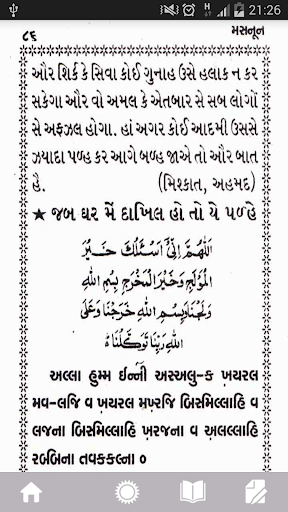 21:26
૮૬ મસનૂન
ઔર શિર્ક કે સિવા કોઈ ગુનાહ ઉસે હલાક ન કર
સકેગા ઔર વો અમલ કે એતબાર સે સબ લોગોં
સે અફઝલ હોગા. હાં અગર કોઈ આદમી ઉસસે
ઝયાદા પળ્હ કર આગે બળ્હ જાએ તો ઔર બાત
હૈ. (મિશ્કાત, અહમદ)
★ જબ ઘર મેં દાખિલ હો તો યે પળ્હે
اَللّٰهُمَّ اِنِّیْ اَسْئَلُكَ خَيْرَ
الْمَوْلَجِ وَخَيْرَ الْمَخْرَجِ بِسْمِ اللّٰهِ
وَلَجْنَا وَبِسْمِ اللّٰهِ خَرَجْنَا وَعَلَى
اللّٰهِ رَبِّنَا تَوَكَّلْنَا
અલ્લા હુમ્મ ઈન્ની અસ્અલુ-ક ખયરલ
મવ-લજિ વ ખયરલ મખ્રજિ બિસ્મિલ્લાહિ વ
લજના બિસ્મિલ્લાહિ ખરજના વ અલલ્લાહિ
રબ્બિના તવકકલ્ના ૦